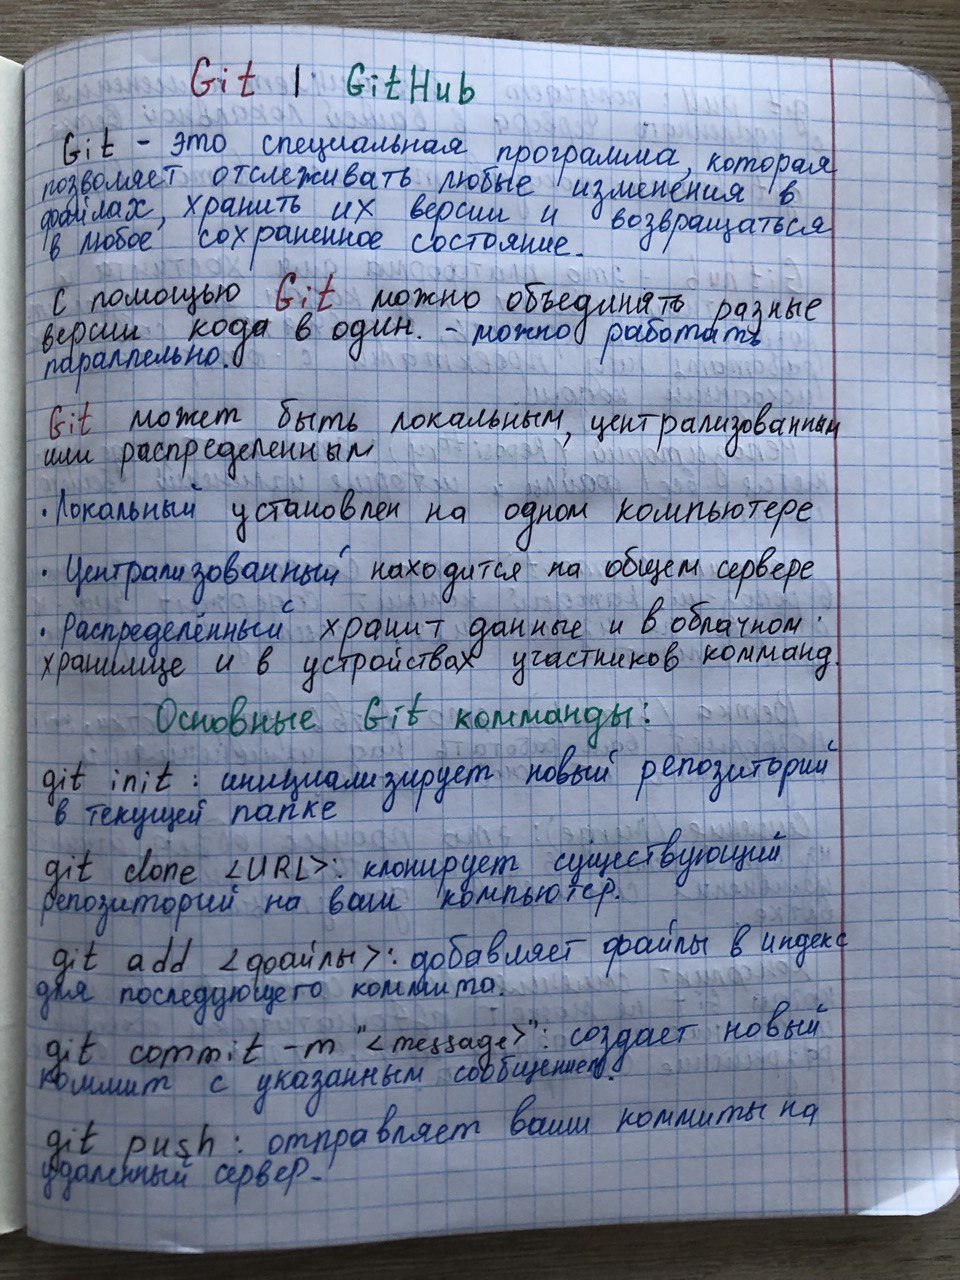 Git | GitHub
Git - это специальная программа, которая
позволяет отслеживать любые изменения в
файлах, хранить их версии и возвращаться
в любое сохраненное состояние.
С помощью Git можно объединять разные
версии кода в один. - можно работать
параллельно.
Git может быть локальным, централизованным
или распределенным
· Локальный установлен на одном компьютере
· Централизованный находится на общем сервере
· Распределённый хранит данные и в облачном
хранилище и в устройствах участников комманд.
Основные Git комманды:
git init : инициализирует новый репозиторий
в текущей папке
git clone <URL>: клонирует существующий
репозиторий на ваш компьютер.
git add <файлы>: добавляет файлы в индекс
для последующего коммита.
git commit -m "<message>": создает новый
коммит с указанным сообщением.
git push : отправляет ваши коммиты на
удаленный сервер.